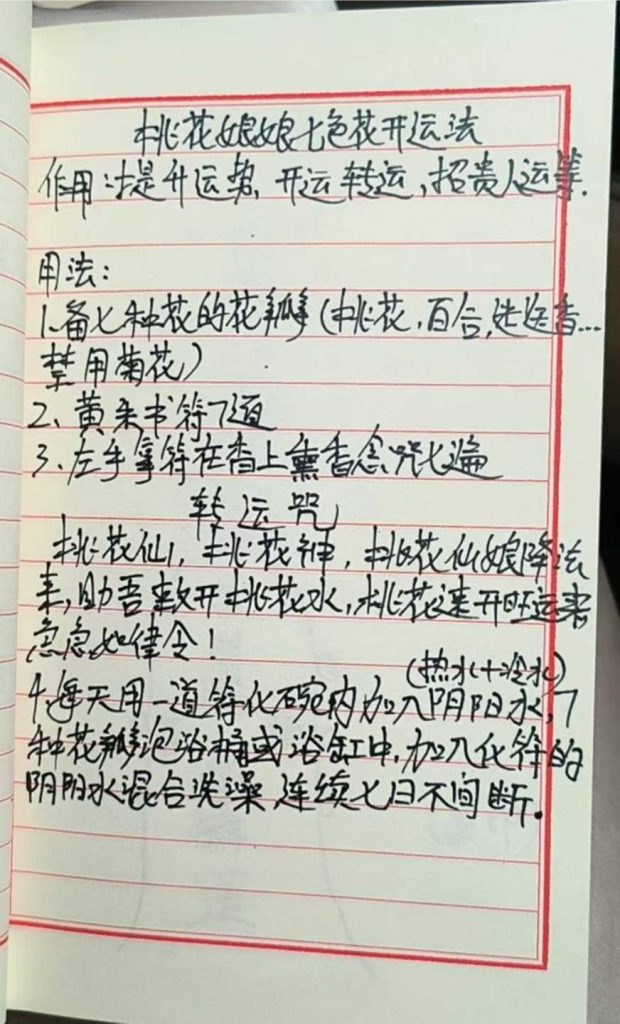 桃花娘娘七色花开运法
作用:提升运势,开运转运,招贵人运等.
用法:
1.备七种花的花瓣(桃花,百合,迷迭香...
禁用菊花)
2、黄朱书符7道
3、左手拿符在香上熏香念咒七遍
转运咒
桃花仙,桃花神,桃花仙娘降法
来,助吾敕开桃花水,桃花速开旺运来
急急如律令!
(热水+冷水)
4.每天用一道符化碗内加入阴阳水,7
种花瓣泡浴桶或浴缸中,加入化符的
阴阳水混合洗澡 连续七日不间断.